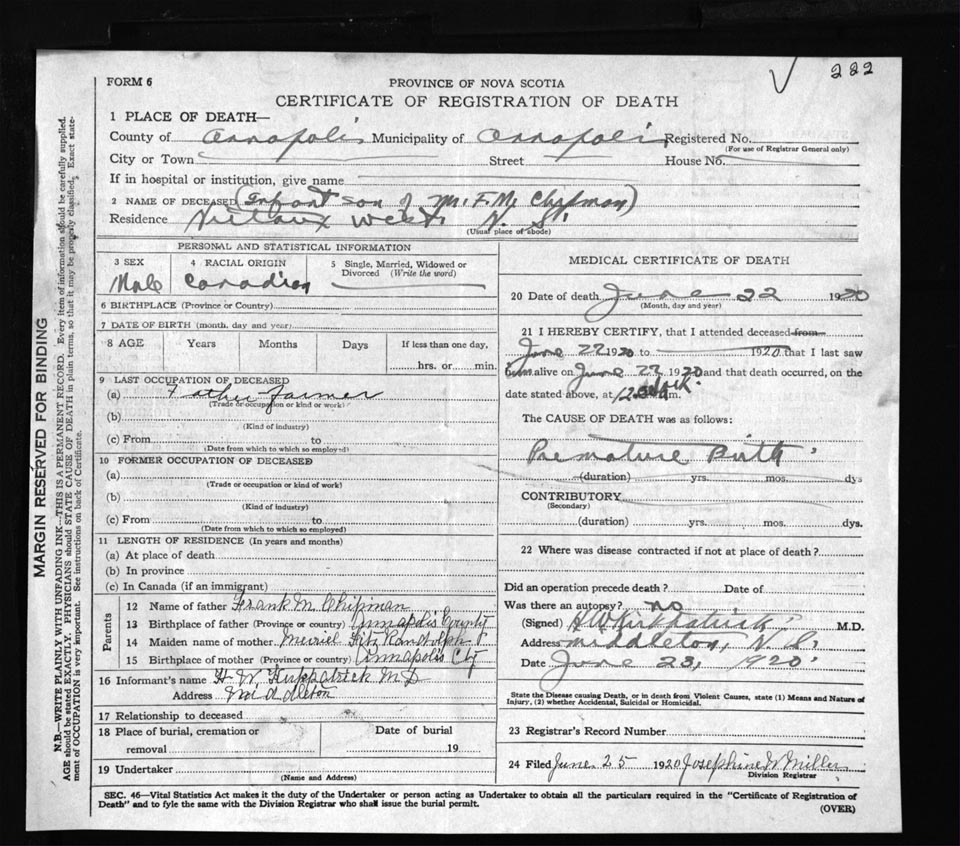 222
FORM 6
PROVINCE OF NOVA SCOTIA
CERTIFICATE OF REGISTRATION OF DEATH
1 PLACE OF DEATH—
County of Annapolis Municipality of Annapolis Registered No.
(For use of Registrar General only)
City or Town Street House No.
If in hospital or institution, give name
2 NAME OF DECEASED (Infant son of Mr. F. M. Chipman)
Residence Nictaux West N. S.
(Usual place of abode)
PERSONAL AND STATISTICAL INFORMATION
3 SEX 4 RACIAL ORIGIN 5 Single, Married, Widowed or
Divorced (Write the word)
Male Canadian
6 BIRTHPLACE (Province or Country)
7 DATE OF BIRTH (month, day and year)
8 AGE Years Months Days If less than one day,
hrs. or min.
9 LAST OCCUPATION OF DECEASED
(a) Father farmer
(Trade or occupation or kind of work)
(b)
(Kind of industry)
(c) From to
(Date from which to which so employed)
10 FORMER OCCUPATION OF DECEASED
(a)
(Trade or occupation or kind of work)
(b)
(Kind of industry)
(c) From to
(Date from which to which so employed)
11 LENGTH OF RESIDENCE (In years and months)
(a) At place of death
(b) In province
(c) In Canada (if an immigrant)
Parents
12 Name of father Frank M. Chipman
13 Birthplace of father (Province or country) Annapolis County
14 Maiden name of mother Muriel Fitz Randolph
15 Birthplace of mother (Province or country) Annapolis Cty
16 Informant's name H. W. Kirkpatrick M D
Address Middleton
17 Relationship to deceased
18 Place of burial, cremation or Date of burial
removal 19
19 Undertaker
(Name and Address)
MEDICAL CERTIFICATE OF DEATH
20 Date of death June 22 1920
(Month, day and year)
21 I HEREBY CERTIFY, that I attended deceased from
June 22 1920 to 1920 that I last saw
him alive on June 22 1920 and that death occurred, on the
date stated above, at m.
The CAUSE OF DEATH was as follows:
Premature Birth
(duration) yrs. mos. dys
CONTRIBUTORY
(Secondary)
(duration) yrs. mos. dys.
22 Where was disease contracted if not at place of death?
Did an operation precede death? Date of
Was there an autopsy? no
(Signed) H W Kirkpatrick M.D.
Address Middleton, N. S.
Date June 23, 1920
State the Disease causing Death, or in death from Violent Causes, state (1) Means and Nature of
Injury, (2) whether Accidental, Suicidal or Homicidal.
23 Registrar's Record Number
24 Filed June 25 1920 Josephine W Miller
Division Registrar
SEC. 46—Vital Statistics Act makes it the duty of the Undertaker or person acting as Undertaker to obtain all the particulars required in the "Certificate of Registration of
Death" and to fyle the same with the Division Registrar who shall issue the burial permit.
(OVER)
MARGIN RESERVED FOR BINDING
N.B.—WRITE PLAINLY WITH UNFADING INK—THIS IS A PERMANENT RECORD. Every item of information should be carefully supplied.
AGE should be stated EXACTLY. PHYSICIANS should STATE CAUSE OF DEATH in plain terms, so that it may be properly classified. Exact state-
ment of OCCUPATION is very important. See instructions on back of Certificate.